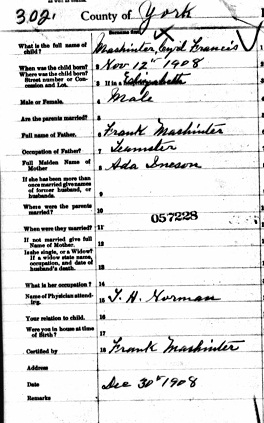 302 County of York
Surname first
What is the full name of child? 1 Mashinter, Cyril Francis
When was the child born? 2 Nov 12th 1908
Where was the child born? Street number or Concession and Lot. 3 If in a Elizabeth
Male or Female. 4 Male
Are the parents married? 5
Full name of Father. 6 Frank Mashinter
Occupation of Father? 7 Teamster
Full Maiden Name of Mother 8 Ada Ineson
If she has been more than once married give names of former husband, or husbands. 9
Where were the parents married? 10
057228
When were they married? 11
If not married give full Name of Mother. 12
Is she single, or a Widow? If a widow state name, occupation, and date of husband's death. 13
What is her occupation? 14
Name of Physician attending. 15 T. H. Norman
Your relation to child. 16
Were you in house at time of Birth? 17
Certified by 18 Frank Mashinter
Address
Date Dec 30th 1908
Remarks